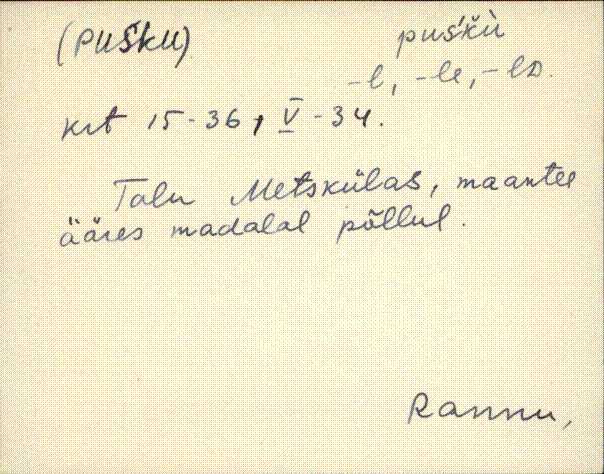 (PUŠKU)
puškù
-l, -le, -lᴅ.
krt 15-36, V-34.
Talu Metskülas, maantee
ääres madalal põllul.
Rannu,